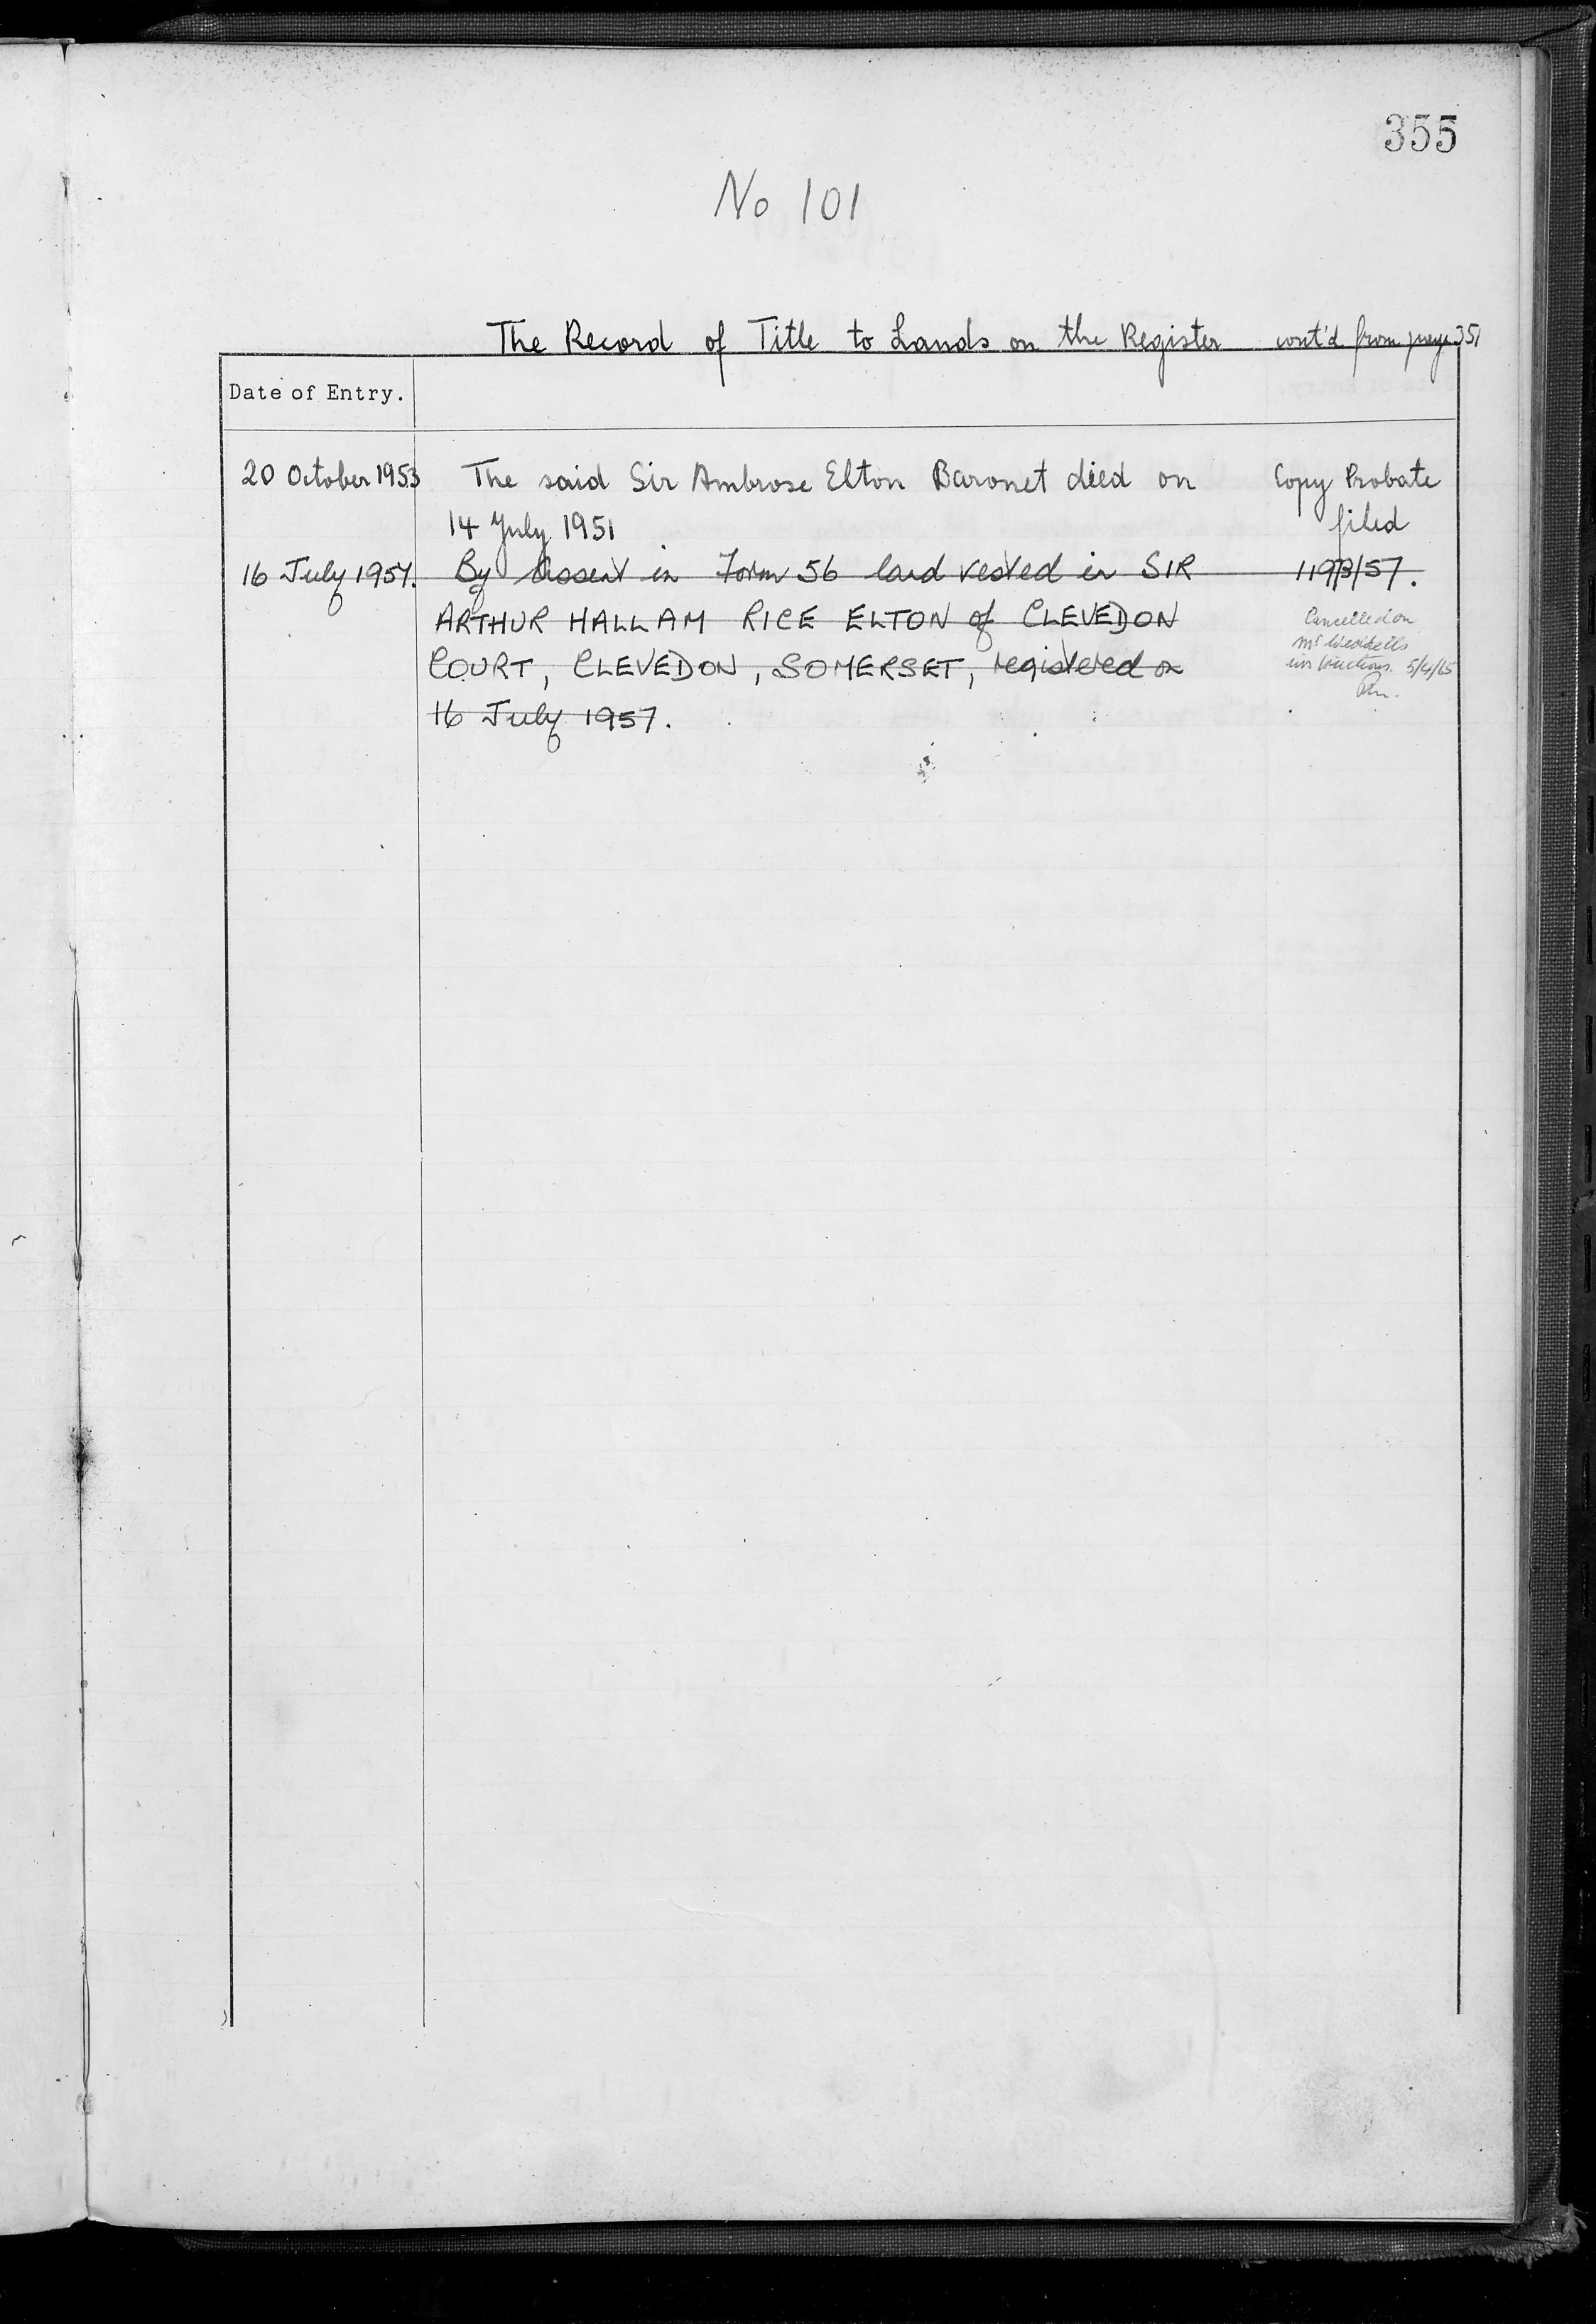 355
No 101
The Record of Title to Lands on the Register cont'd from page 351
Date of Entry.
20 October 1953 The said Sir Ambrose Elton Baronet died on Copy Probate
14 July 1951 filed
16 July 1957. By Assent in Form 56 land vested in SIR 1193/57.
ARTHUR HALLAM RICE ELTON of CLEVEDON Cancelled on
COURT, CLEVEDON, SOMERSET, registered on Mr instructions. 5/4/65
16 July 1957.